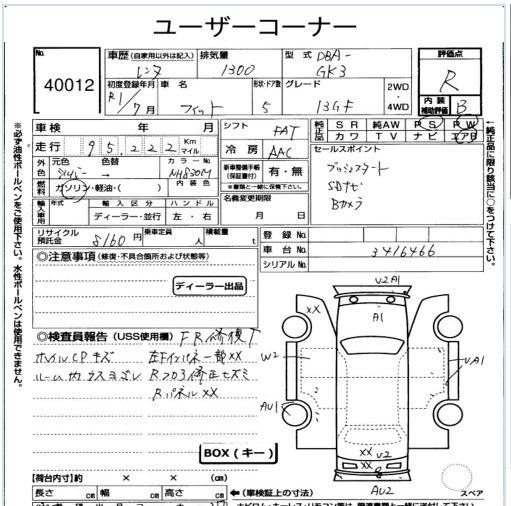 ユーザーコーナー
No.
40012
車歴 (自家用以外は記入)
レンタ
排気量
1300
型式
DBA-
GK3
評価点
R
内装
補助評価
B
初度登録年月
R1/7月
車名
フィット
形状・ドア数
5
グレード
13GF
2WD
4WD
車検 年 月
シフト
FAT
純正品
SR 純AW PS PW
カワ TV ナビ エアB
走行
95,222
Km
マイル
冷房
AAC
セールスポイント
プッシュスタート
SDナビ
Bカメラ
外色
元色
シルバー
色替
カラーNo
NH830M
新車整備手帳
(保証書付)
有・無
※書類と一緒に保管下さい。
燃料
ガソリン・軽油・( )
内装色
名義変更期限
月 日
輸入車用
年式
輸入区分
ディーラー・並行
ハンドル
左・右
リサイクル
預託金
8160 円
乗車定員
人
積載量
t
登録No
車台No
3416466
シリアルNo
◎注意事項 (修復・不具合箇所および状態等)
ディーラー出品
◎検査員報告 (USS使用欄)
FR修復下
ホイルCPキズ 左Fインパネ一部XX
ルーム内ウスヨゴレ
RパネルXX
BOX (キー)
V2A1
A1
XX
W2
UA1
AU1
XX
V2
XX
AU2
スペア
【荷台内寸】 × × (cm)
長さ cm 幅 cm 高さ cm
←(車検証上の寸法)
※必ず油性ボールペンをご使用下さい。水性ボールペンは使用できません。
←純正品に限り該当に○をつけて下さい。